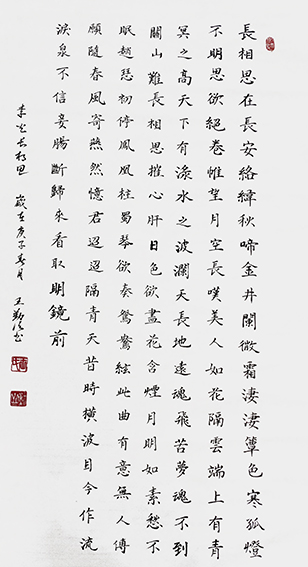 長相思在長安絡緯秋啼金井闌微霜淒淒簟色寒孤燈
不明思欲絕卷帷望月空長嘆美人如花隔雲端上有青
冥之高天下有淥水之波瀾天長地遠魂飛苦夢魂不到
關山難長相思摧心肝日色欲盡花含煙月明如素愁不
眠趙瑟初停鳳凰柱蜀琴欲奏鴛鴦絃此曲有意無人傳
願隨春風寄燕然憶君迢迢隔青天昔時橫波目今作流
淚泉不信妾腸斷歸來看取明鏡前
李白長相思 歲在庚子春月 王